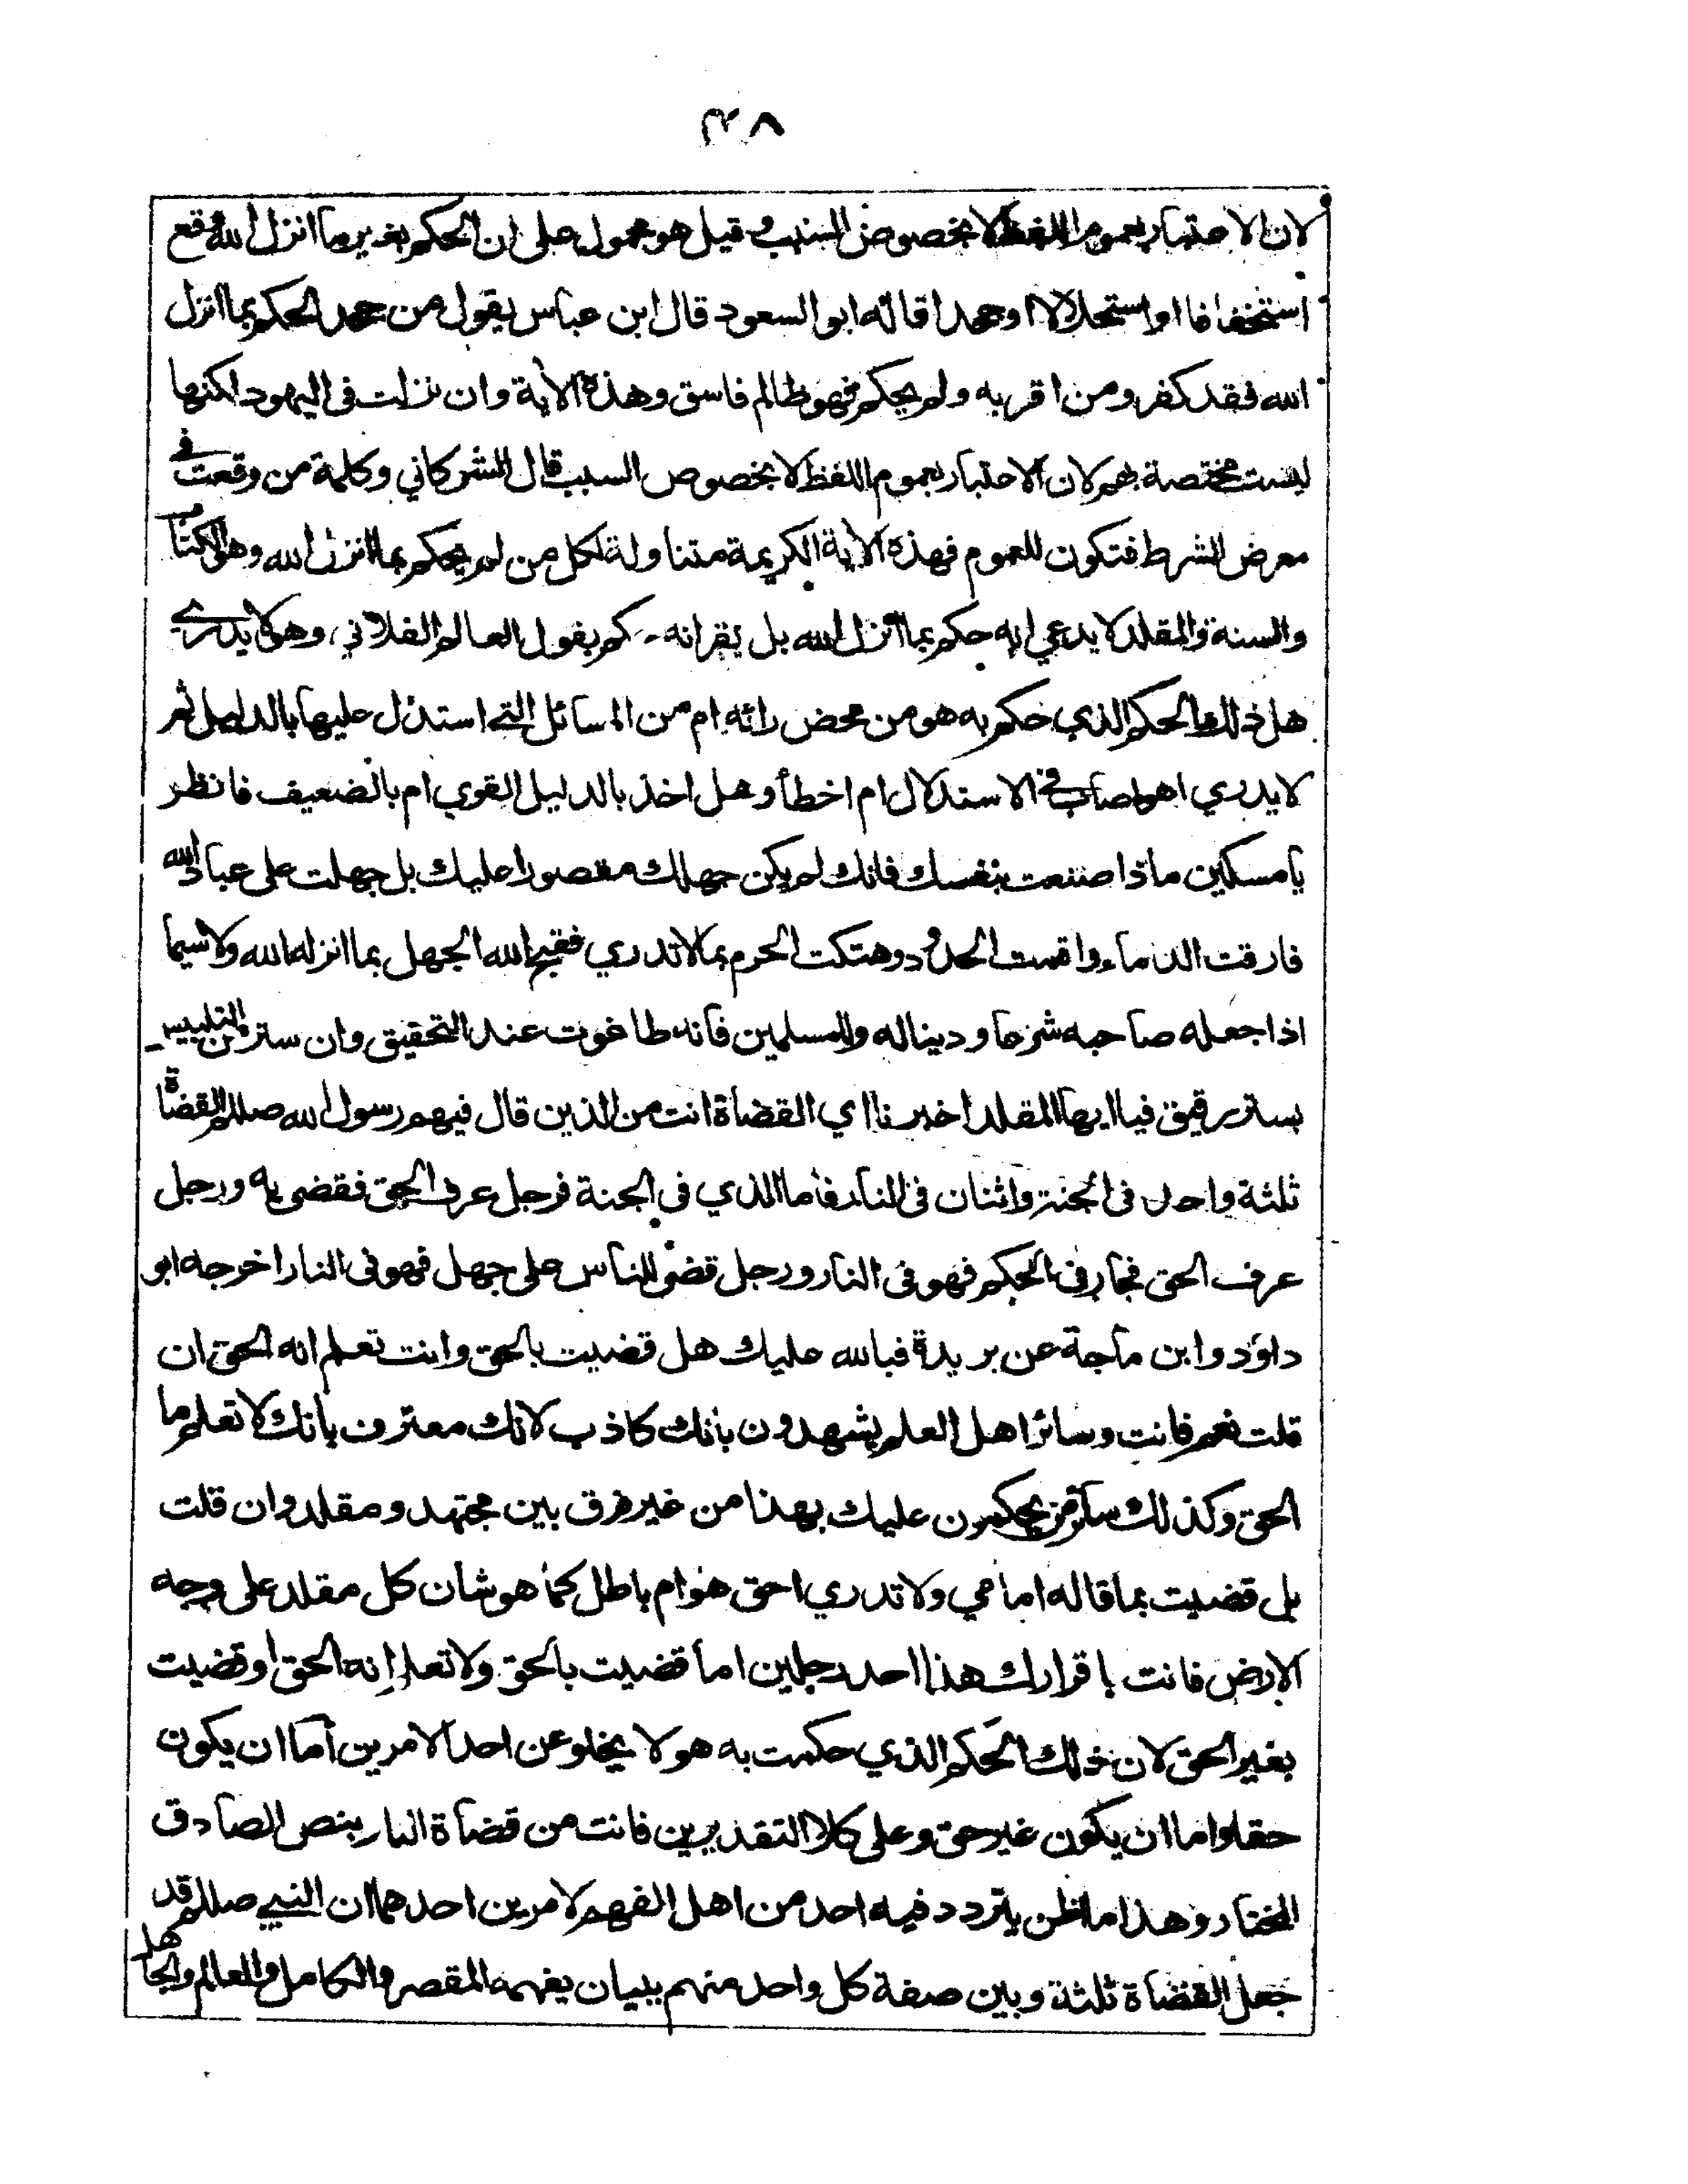 ٣٨
لان الاعتبار بعموم اللفظ لا بخصوص السبب وقيل هو محمول على ان الحكم بغير ما انزل الله وقع
استخفافا او استحلالا او جحدا قاله ابو السعود قال ابن عباس يقول من جحد الحكم بما انزل
الله فقد كفر ومن اقر به ولم يحكم فهو ظالم فاسق وهذه الآية وان نزلت فى اليهود لكنها
ليست مختصة بهم لان الاعتبار بعموم اللفظ لا بخصوص السبب قال الشوكاني وكلمة من وقعت في
معرض الشرط فتكون للعموم فهذه الآية الكريمة متناولة لكل من لم يحكم بما انزل الله وهو الكتاب
والسنة والمقلد لا يدعي انه حكم بما انزل الله بل يقر انه حكم بقول العالم الفلاني وهو لا يدري
هل ذلك الحكم الذي حكم به هو من محض رائه ام من المسائل التي استدل عليها بالدليل ثم
لا يدري اهو اصاب في الاستدلال ام اخطأ وهل اخذ بالدليل القوي ام بالضعيف فانظر
يا مسكين ماذا صنعت بنفسك فانك لم يكن جهلك مقصورا عليك بل جهلت على عباد الله
فارقت الدماء واقمت الحدود وهتكت الحرم بما لا تدري فقبح الله الجهل بما انزله الله ولا سيما
اذا جعله صاحبه شرعا و دينا له وللمسلمين فانه طاغوت عند التحقيق وان ستر من التلبيس
بستر رقيق فيا ايها المقلد اخبرنا اي القضاة انت من الذين قال فيهم رسول الله صللم القضاة
ثلثة واحد فى الجنة واثنان فى النار فاما الذي فى الجنة فرجل عرف الحق فقضى به ورجل
عرف الحق فجار فى الحكم فهو فى النار ورجل قضى للناس على جهل فهو فى النار اخرجه ابو
داؤد وابن ماجة عن بريدة فبالله عليك هل قضيت بالحق وانت تعلم انه الحق ان
قلت نعم فانت وسائر اهل العلم يشهدون بانك كاذب لانك معترف بانك لا تعلم ما
الحق وكذلك سائر من يحكمون عليك بهذا من غير فرق بين مجتهد ومقلد وان قلت
بل قضيت بما قاله امامي ولا تدري احق هو ام باطل كما هو شان كل مقلد على وجه
الارض فانت باقرارك هذا احد رجلين اما قضيت بالحق ولا تعلم انه الحق او قضيت
بغير الحق لان ذلك الحكم الذي حكمت به هو لا يخلو عن احد الامرين اما ان يكون
حقا واما ان يكون غير حق وعلى كلا التقديرين فانت من قضاة النار بنص الصادق
المختار وهذا ما اظن يتردد فيه احد من اهل الفهم لامرين احدهما ان النبي صللم قد
جعل القضاة ثلثة وبين صفة كل واحد منهم ببيان يفهمه المقصر والكامل والعالم والجاهل